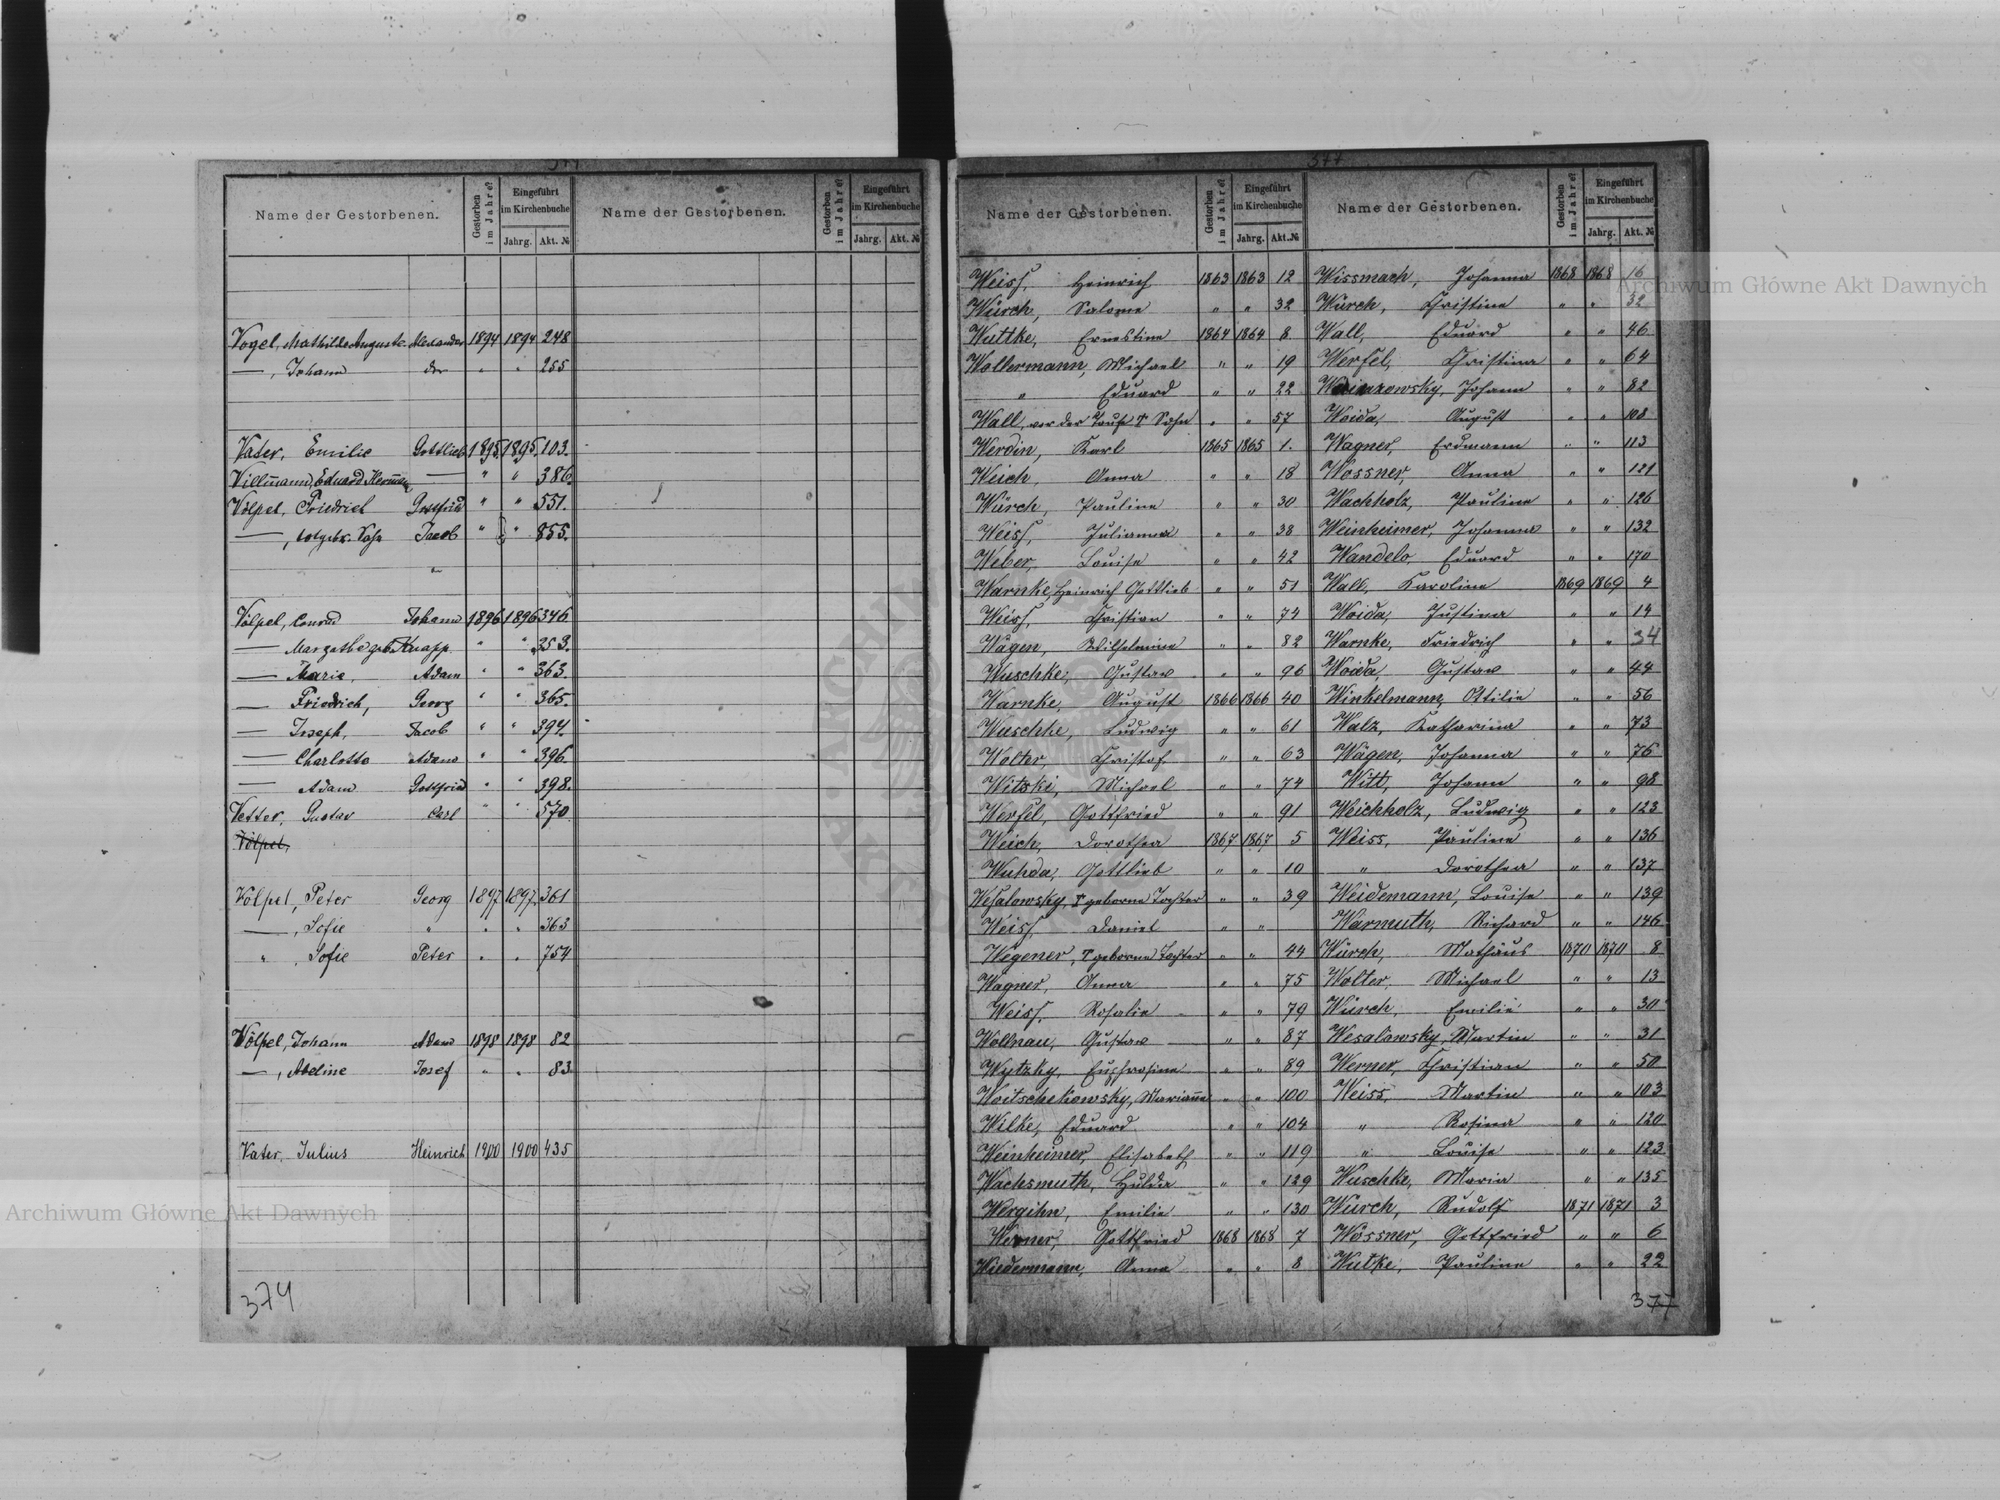 377
Name der Gestorbenen. Gestorben im Jahre? Eingeführt im Kirchenbuche Jahrg. Akt. № Name der Gestorbenen. Gestorben im Jahre? Eingeführt im Kirchenbuche Jahrg. Akt. №
Vogel, Mathilde Auguste Alexander 1894 1894 248
—, Johann 〃 〃 255
Vater, Emilie Gottlieb 1895 1895 103.
Villmann, Eduard Hermann — 〃 〃 386.
Völpel, Friedrich Gottfried 〃 〃 551.
—, totgeb. Sohn Jacob 〃 〃 855.
Völpel, Conrad Johann 1896 1896 346
— Margethe geb. Knapp 〃 〃 353.
— Marie, Adam 〃 〃 363.
— Friedrich, Georg 〃 〃 365.
— Joseph, Jacob 〃 〃 394.
— Charlotte Adam 〃 〃 396.
— Adam Gottfried 〃 〃 398.
Vetter, Gustav Carl 〃 〃 570
Völpel,
Völpel, Peter Georg 1897 1897 361
—, Sofie 〃 〃 〃 363
〃, Sofie Peter 〃 〃 754
Völpel, Johann Adam 1898 1898 82
—, Adeline Josef 〃 〃 83
Vater, Julius Heinrich 1900 1900 435
374
Name der Gestorbenen. Gestorben im Jahre? Eingeführt im Kirchenbuche Jahrg. Akt. № Name der Gestorbenen. Gestorben im Jahre? Eingeführt im Kirchenbuche Jahrg. Akt. №
Weiss, Heinrich 1863 1863 12
Würch, Salome 〃 〃 32
Wuttke, Ernestine 1864 1864 8
Woltermann, Michael 〃 〃 19
〃 Eduard 〃 〃 22
Wall, vor der Taufe † Sohn 〃 〃 57
Werdin, Karl 1865 1865 1.
Weich, Anna 〃 〃 18
Würch, Pauline 〃 〃 30
Weiss, Julianna 〃 〃 38
Weber, Louise 〃 〃 42
Warnke, Heinrich Gottlieb 〃 〃 51
Weiss, Christian 〃 〃 74
Wägen, Wilhelmine 〃 〃 82
Wuschke, Gustav 〃 〃 96
Warnke, August 1866 1866 40
Wuschke, Ludwig 〃 〃 61
Wolter, Christof 〃 〃 63
Witzki, Michael 〃 〃 74
Werfel, Gottfried 〃 〃 91
Weich, Dorothea 1867 1867 5
Wuhda, Gottlieb 〃 〃 10
Wesalowsky, † geborne Tochter 〃 〃 39
Weiss, Daniel 〃 〃
Wegener, † geborne Tochter 〃 〃 44
Wagner, Anna 〃 〃 75
Weiss, Rosalie 〃 〃 79
Wollnau, Gustav 〃 〃 87
Wytzky, Euphrosine 〃 〃 89
Woitschekowsky, Marianne 〃 〃 100
Wilke, Eduard 〃 〃 104
Weinheimer, Elisabeth 〃 〃 119
Wachsmuth, Hulda 〃 〃 129
Wergihn, Emilie 〃 〃 130
Werner, Gottfried 1868 1868 7
Wiedermann, Anna 〃 〃 8
Wissmach, Johanna 1868 1868 16
Würch, Christine 〃 〃 32
Wall, Eduard 〃 〃 46
Werfel, Christina 〃 〃 64
Johann 〃 〃 82
Woida, August 〃 〃 108
Wagner, Erdmann 〃 〃 113
Wossner, Anna 〃 〃 121
Wachholz, Pauline 〃 〃 126
Weinheimer, Johanna 〃 〃 132
Wandelo, Eduard 〃 〃 170
Wall, Karoline 1869 1869 4
Woida, Justina 〃 〃 14
Warnke, Friedrich 〃 〃 34
Woida, Gustav 〃 〃 44
Winkelmann, Ottilie 〃 〃 56
Walz, Katharina 〃 〃 73
Wägen, Johanna 〃 〃 76
Witt, Johann 〃 〃 98
Weichholz, Ludwig 〃 〃 123
Weiss, Pauline 〃 〃 136
〃 Dorothea 〃 〃 137
Weidemann, Louise 〃 〃 139
Warmuth, Richard 〃 〃 146
Würch, Mathäus 1870 1870 8
Wolter, Michael 〃 〃 13
Würch, Emilie 〃 〃 30
Wesalowsky, Martin 〃 〃 31
Werner, Christian 〃 〃 50
Weiss, Martin 〃 〃 103
〃 Rosina 〃 〃 120
〃 Louise 〃 〃 123
Wuschke, Maria 〃 〃 135
Würch, Rudolf 1871 1871 3
Wossner, Gottfried 〃 〃 6
Wutke, Pauline 〃 〃 22
377
Archiwum Główne Akt Dawnych
Archiwum Główne Akt Dawnych